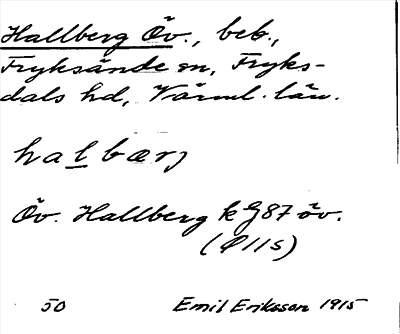 Hallberg Öv., beb.,
Fryksände sn, Fryks-
dals hd, Värml. län.
halbærj
Öv. Hallberg k G87 öv.
(Ø115)
50 Emil Eriksson 1915